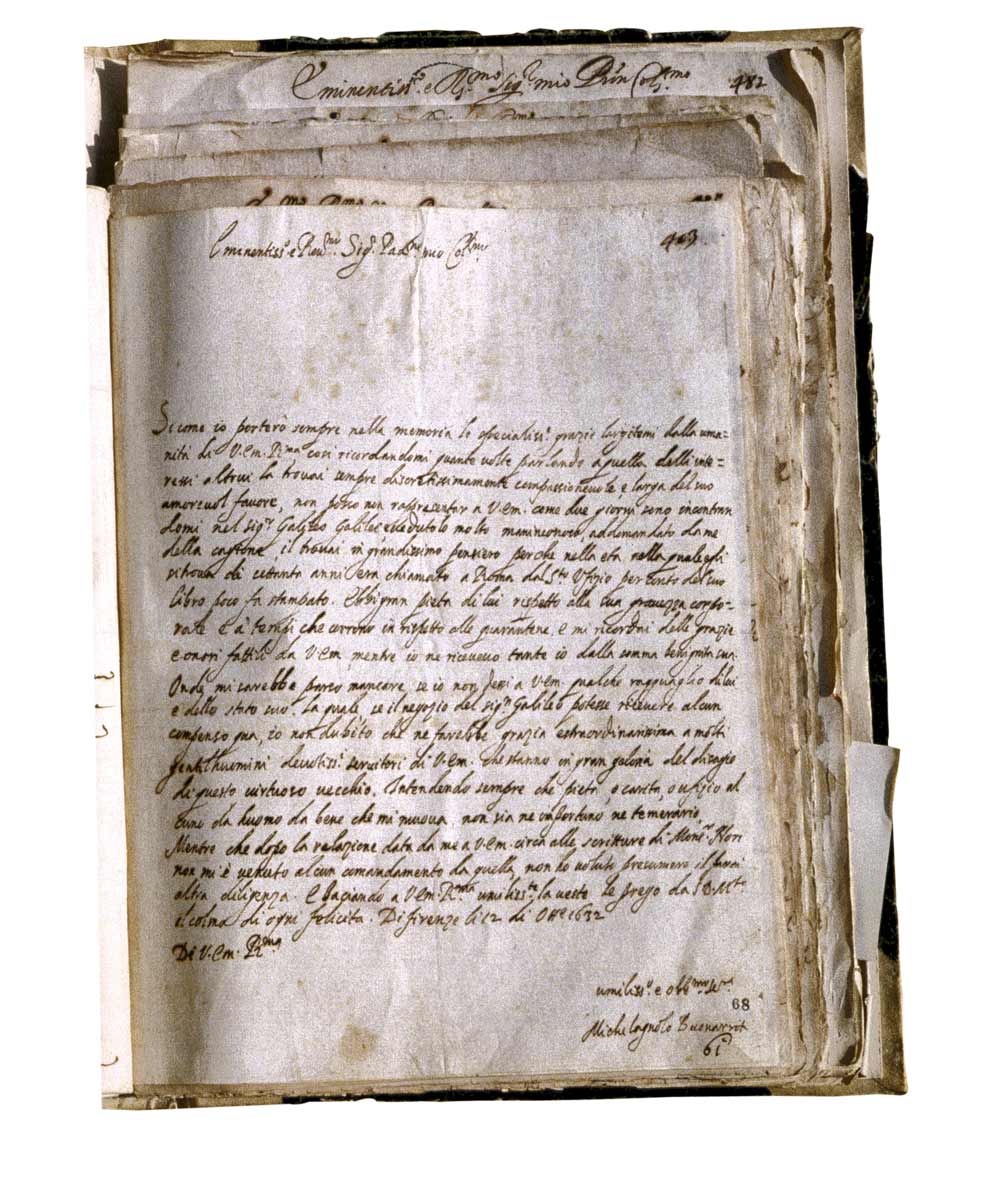 Eminentiss.o e R.mo Sig.r mio P̃rõn Col.mo 482
Eminentiss.o e Reu.mo Sig.r Padne mio Col.mo 483
Si come io porterò sempre nella memoria le specialiss.e grazie largitemi dalla uma=
nità di V. Em. R.ma così ricordandomi quante volte parlando a quella delli inte=
ressi altrui la trouai sempre discretissimamente compassioneuole e larga del suo
amoreuol fauore, non posso non rappresentar a V. Em. come due giorni sono incontran
domi nel sig.r Galileo Galilei e uedutolo molto maninconoso, addomandato da me
della cagione, il trouai in grandissimo pensiero perche nella età nella quale egli
si troua di settanta anni era chiamato a Roma dal S.to Ufizio per conto del suo
libro poco fa stampato. Ebbi gran pietà di lui rispetto alla sua grauezza corpo-
rale e a' tempi che corrono in rispetto alle quarantene, e mi ricordai delle grazie
e onori fattili da V. Em. mentre io ne riceueuo tante io dalla somma benignità sua.
Onde mi sarebbe parso mancare, se io non dessi a V. Em. qualche ragguaglio di lui
e dello stato suo. La quale se il negozio del sig.r Galileo potesse riceuere alcun
compenso qua, io non dubito che ne farebbe grazia estraordinarissima a molti
gentilhuomini deuotiss.i seruitori di V. Em. che stanno in gran gelosia del disagio
di questo uirtuoso uecchio. Intendendo sempre che pietà, o carità, o ufizio al
cuno da huomo da bene che mi muoua, non sia ne importuno ne temerario,
Mentre che dopo la relazione data da me a V. Em. circa alle scritture di Mons.r
non mi è venuto alcun comandamento da quella, non ho uoluto presumere il farui
altra diligenza. E baciando a V. Em. R.ma umiliss.te la ueste le prego da S. D. M.tà
il colmo di ogni felicità. Di firenze li 12 di Ott.e 1632
Di V. Em. R.ma
umiliss.o e obb.mo se.re
68
Michelagnolo Buonarroti